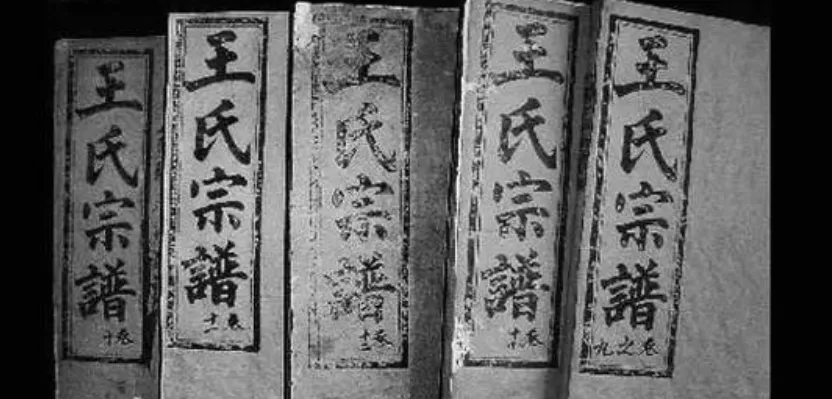 王氏宗譜
卷十
王氏宗譜
卷十一
王氏宗譜
卷十二
王氏宗譜
王氏宗譜
卷之九